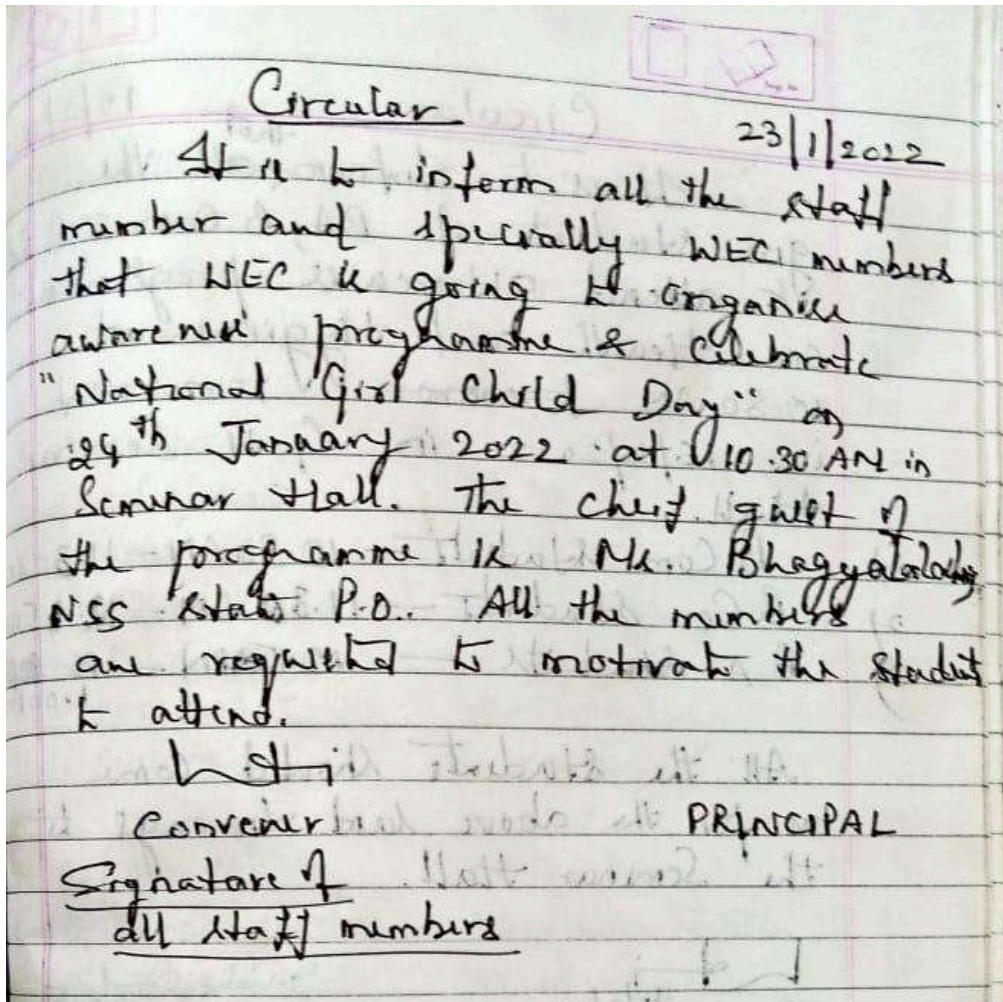 Circular
23/1/2022
It is to inform all the staff
member and specially WEC members
that WEC is going to organise
awareness programme & celebrate
"National Girl Child Day" on
24th January 2022 at 10.30 AM in
Seminar Hall. The cheif guest of
the programme is Ms.
NSS State P.O. All the members
are requested to motivate the students
to attend.
Convener PRINCIPAL
Signature of
all staff members